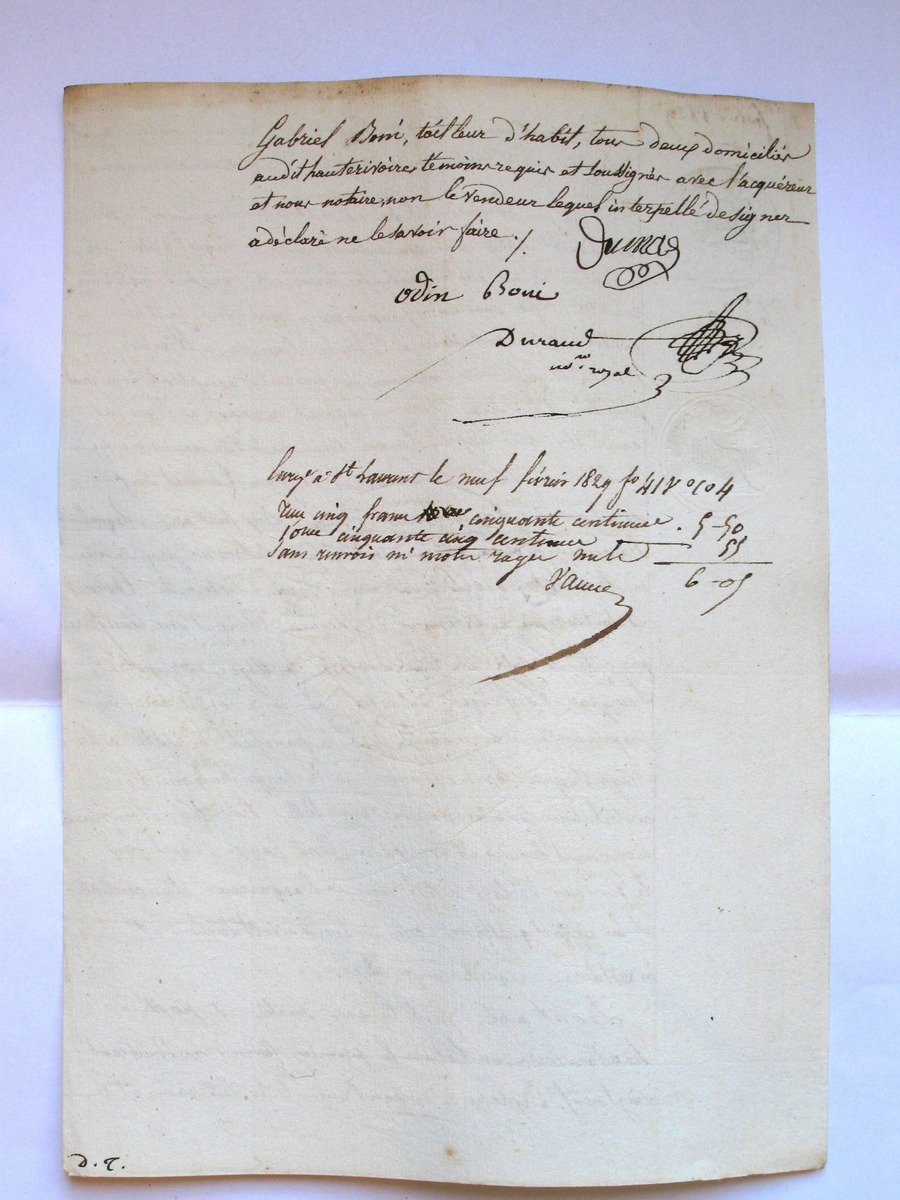 Gabriel Boni, tailleur d'habit, tous deux domiciliés
audit hauterivoire, témoins requis et soussignés avec l'acquéreur
et nous notaire, non le vendeur lequel interpellé de signer
a déclaré ne le savoir faire ./.
Dumas
odin Boni
Durand
no.re royal
Enregé à St Laurent le neuf février 1829 fo 41 Vo Co 4
Reçu cinq francs cinquante centimes . 5-50
10me cinquante cinq centimes 55
Sans renvois ni mots rayés nuls
6-05
D. T.